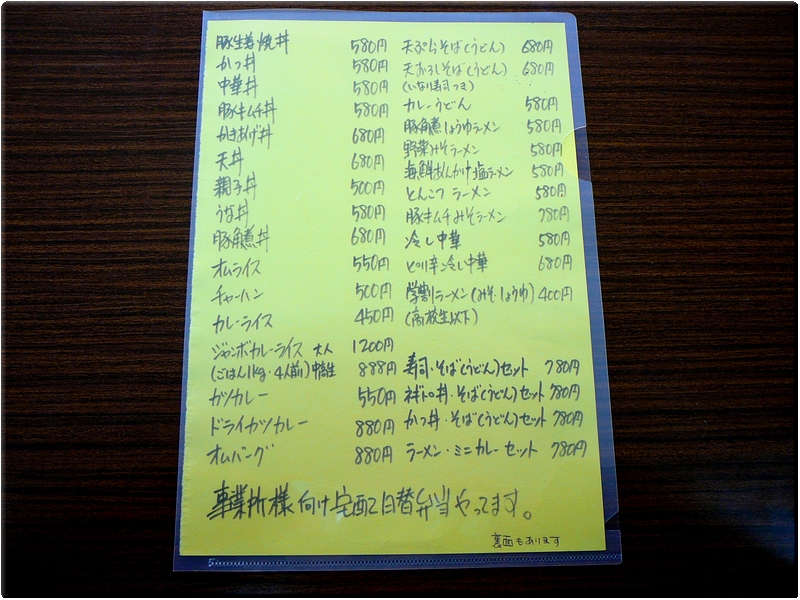 豚生姜焼丼 580円
かつ丼 580円
中華丼 580円
豚キムチ丼 580円
かきあげ丼 680円
天丼 680円
親子丼 500円
うな丼 580円
豚角煮丼 680円
オムライス 550円
チャーハン 500円
カレーライス 450円
ジャンボカレーライス 大人 1200円
(ごはん1kg・4人前) 中高生 888円
カツカレー 550円
ドライカツカレー 880円
オムバーグ 880円
天ぷらそば(うどん) 680円
天おろしそば(うどん) 680円
(いなり寿司つき)
カレーうどん 580円
豚角煮しょうゆラーメン 580円
野菜みそラーメン 580円
海鮮あんかけ塩ラーメン 580円
とんこつラーメン 580円
豚キムチみそラーメン 780円
冷し中華 580円
ピリ辛冷し中華 680円
学割ラーメン(みそ・しょうゆ) 400円
(高校生以下)
寿司・そば(うどん)セット 780円
ネギトロ丼・そば(うどん)セット 780円
かつ丼・そば(うどん)セット 780円
ラーメン・ミニカレーセット 780円
事業所様向け宅配で日替弁当やってます。
裏面もあります